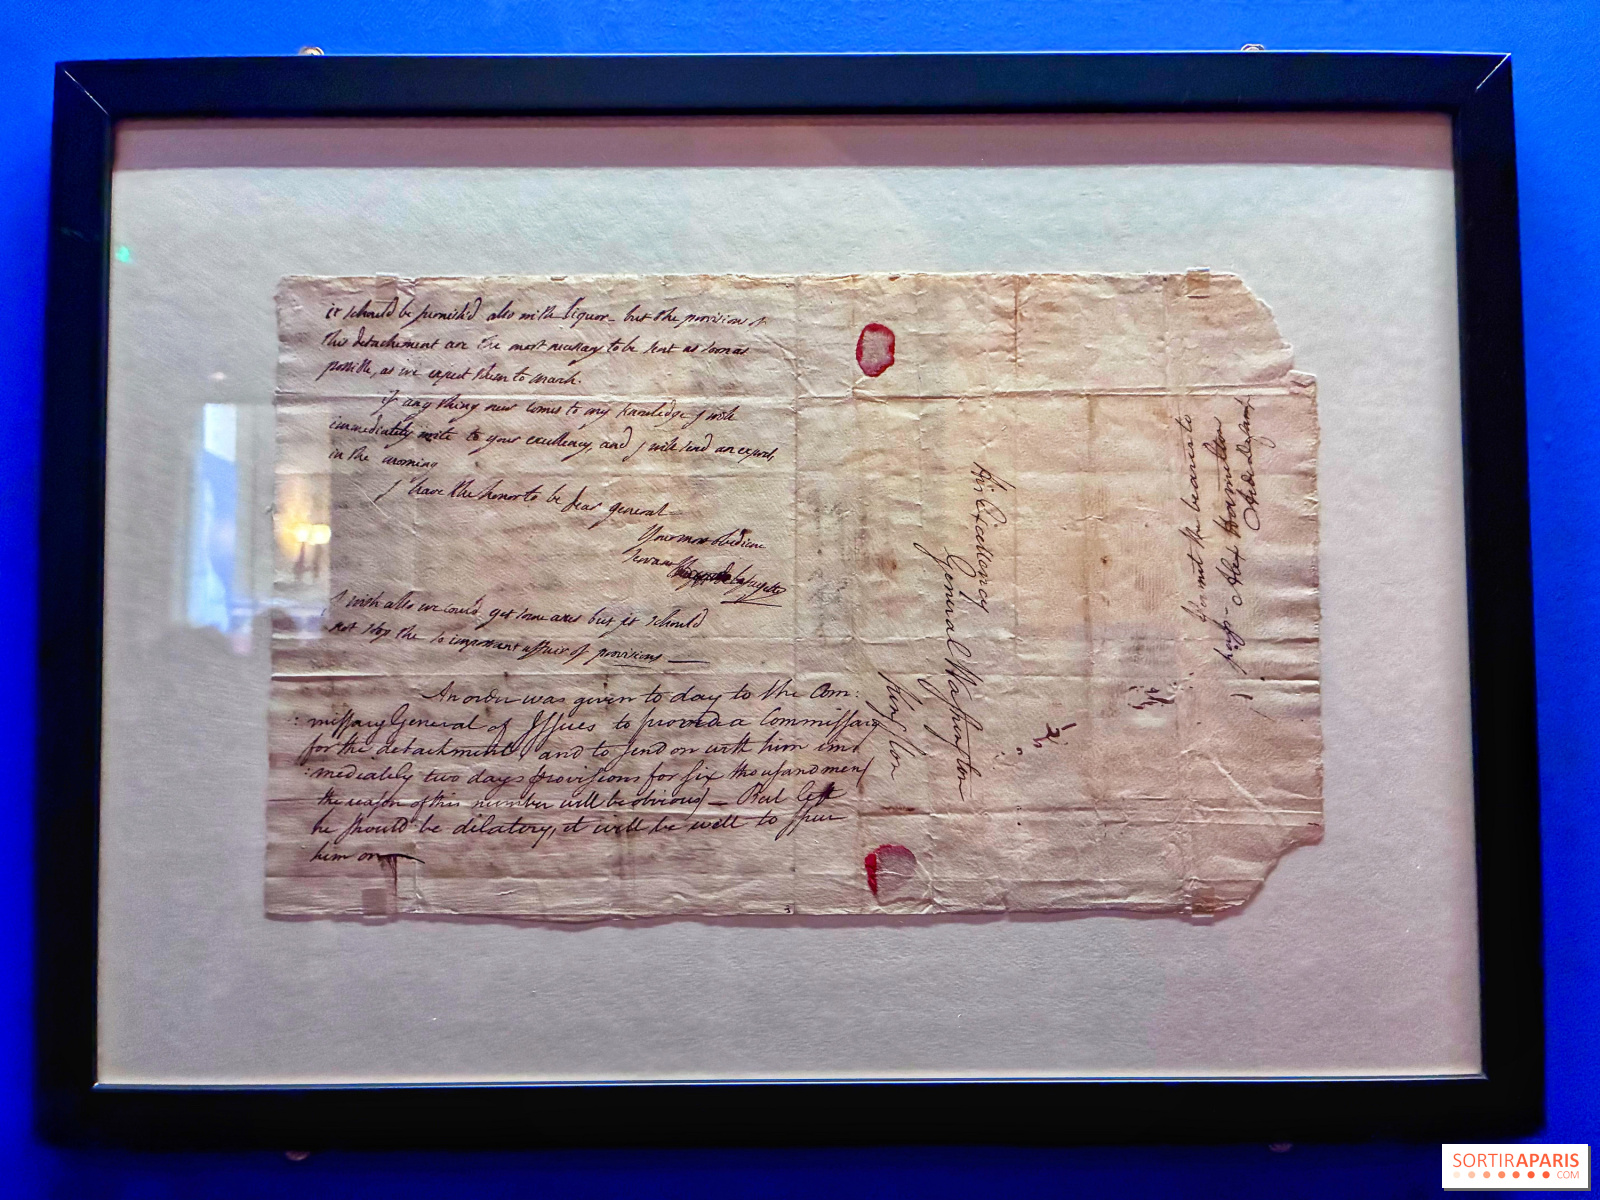 it should be furnish'd also with liquor - but the provisions of
this detachement are the most necessary to be sent as soon as
possible, as we expect them to march.
if any thing new comes to my knowledge j will
immediately write to your excellency, and j will send an express
in the morning
j have the honor to be dear general
Your most obedient
servant
lafayette
I wish also we could get some axes but it should
not stop the so important affair of provisions —
An order was given to day to the Com:
:missary General of Issues to provide a Commissary
for the detachment, and to send on with him im
:mediately two days provisions for six thousand men
the reason of this number will be obvious) — But lest
he should be dilatory, it will be well to spur
him on —
His Excellency
General Washington
Kingston
Permit the bearer to
pass - Alex Hamilton
Aide de Camp
SORTIRAPARIS
.COM